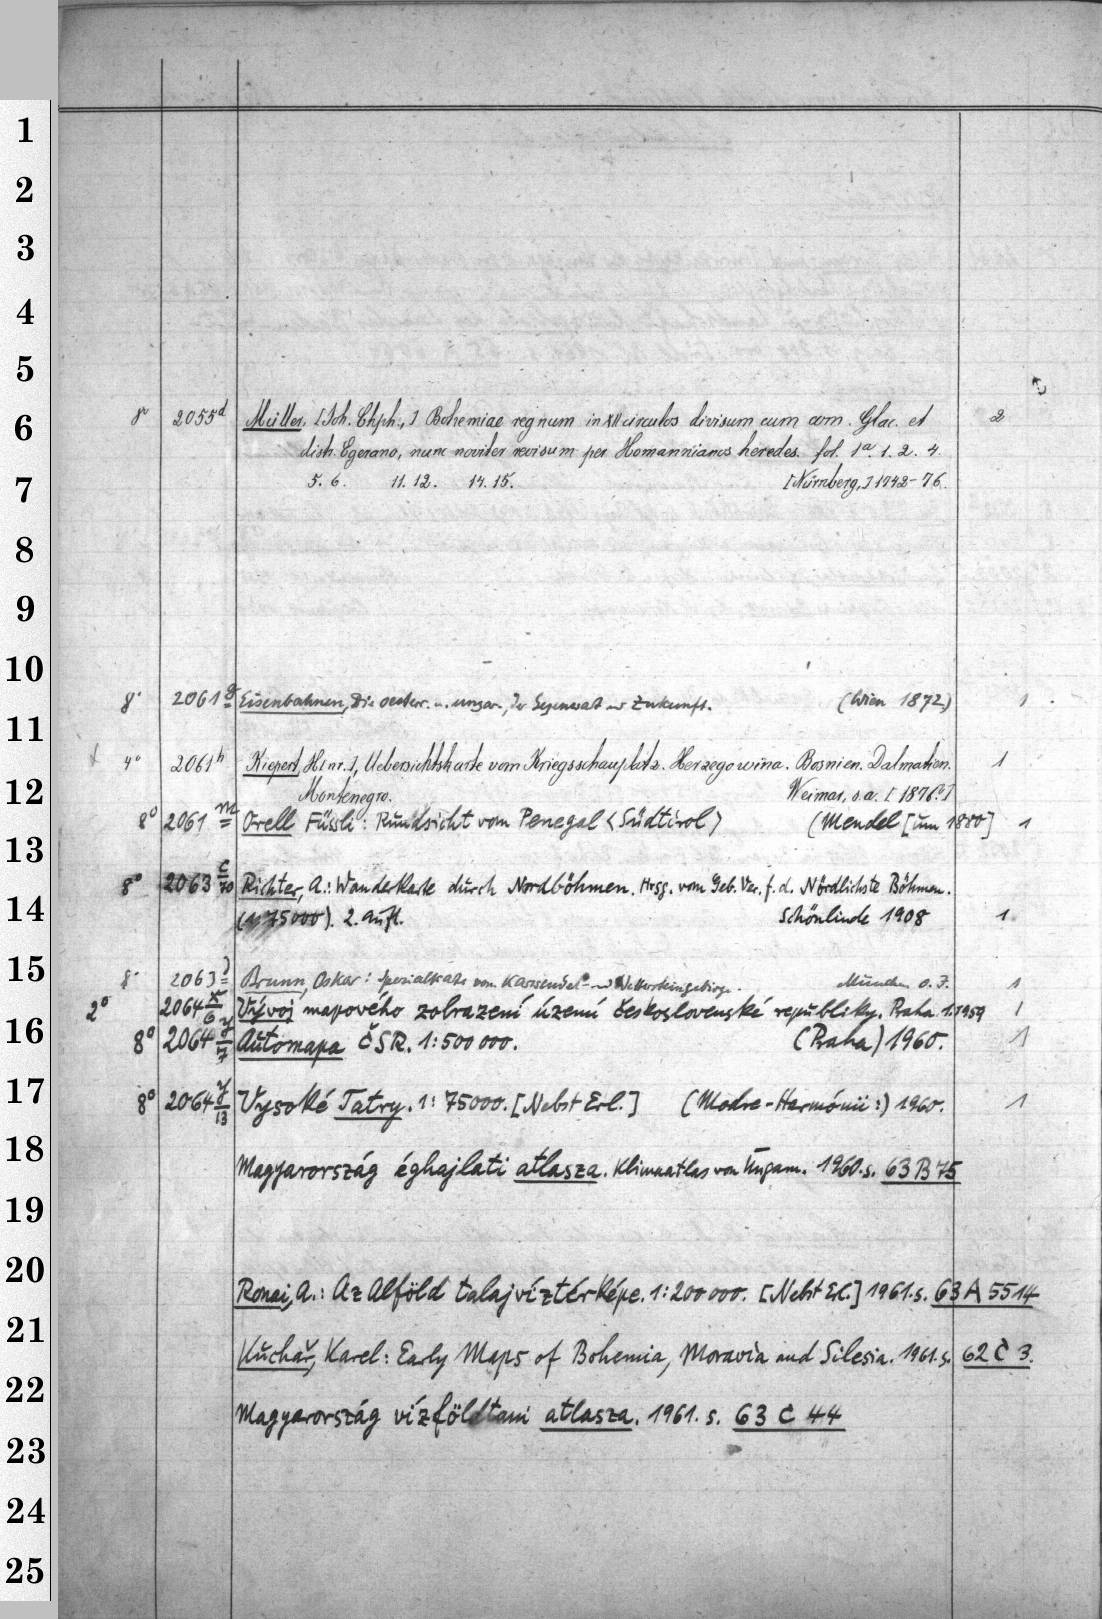 1
2
3
4
5
6
7
8
9
10
11
12
13
14
15
16
17
18
19
20
21
22
23
24
25
8° 2055d Müller, [Joh. Chph.,] Bohemiae regnum in XII circulos divisum cum com. Glac. et 2
distr. Egerano, nunc noviter revisum per Homannianos heredes. fol. 1a. 1. 2. 4.
5. 6. 11. 12. 14. 15. [Nürnberg,] 1742-76.
8° 2061g Eisenbahnen, Die oesterr. u. ungar., Zukunft. (Wien 1872) 1
4° 2061h Kiepert, H[nr.], Uebersichtskarte vom Kriegsschauplatz. Herzegowina. Bosnien. Dalmatien. 1
Montenegro. Weimar, o.a. [1876?]
8° 2061 m Orell Füssli: Rundsicht vom Penegal <Südtirol> (Mendel [um 1880] 1
8° 2063 c/70 Richter, A.: Wanderkarte durch Nordböhmen. Hrsg. vom Geb. Ver. f. d. Nördlichste Böhmen.
(1:75000). 2. Aufl. Schönlinde 1908 1
8° 2063 Brunn, Oskar: Spezialkarte vom Karwendel- und Wettersteingebirge. München o. J. 1
2° 2064 x/6 Vývoj mapového zobrazení území československé republiky. Praha 1.1959 1
8° 2064 y/7 Automapa ČSR. 1:500000. (Praha) 1960. 1
8° 2064 y/13 Vysoké Tatry. 1:75000. [Nebst Erl.] (Modra-Harmónii:) 1960. 1
Magyarország éghajlati atlasza. Klimaatlas von Ungarn. 1960. s. 63 B 75
Ronai, A.: Az Alföld talajvíztérképe. 1:200000. [Nebst Erl.] 1961. s. 63 A 5514
Kuchař, Karel: Early Maps of Bohemia, Moravia and Silesia. 1961. s. 62 C 3.
Magyarország vízföldtani atlasza. 1961. s. 63 C 44